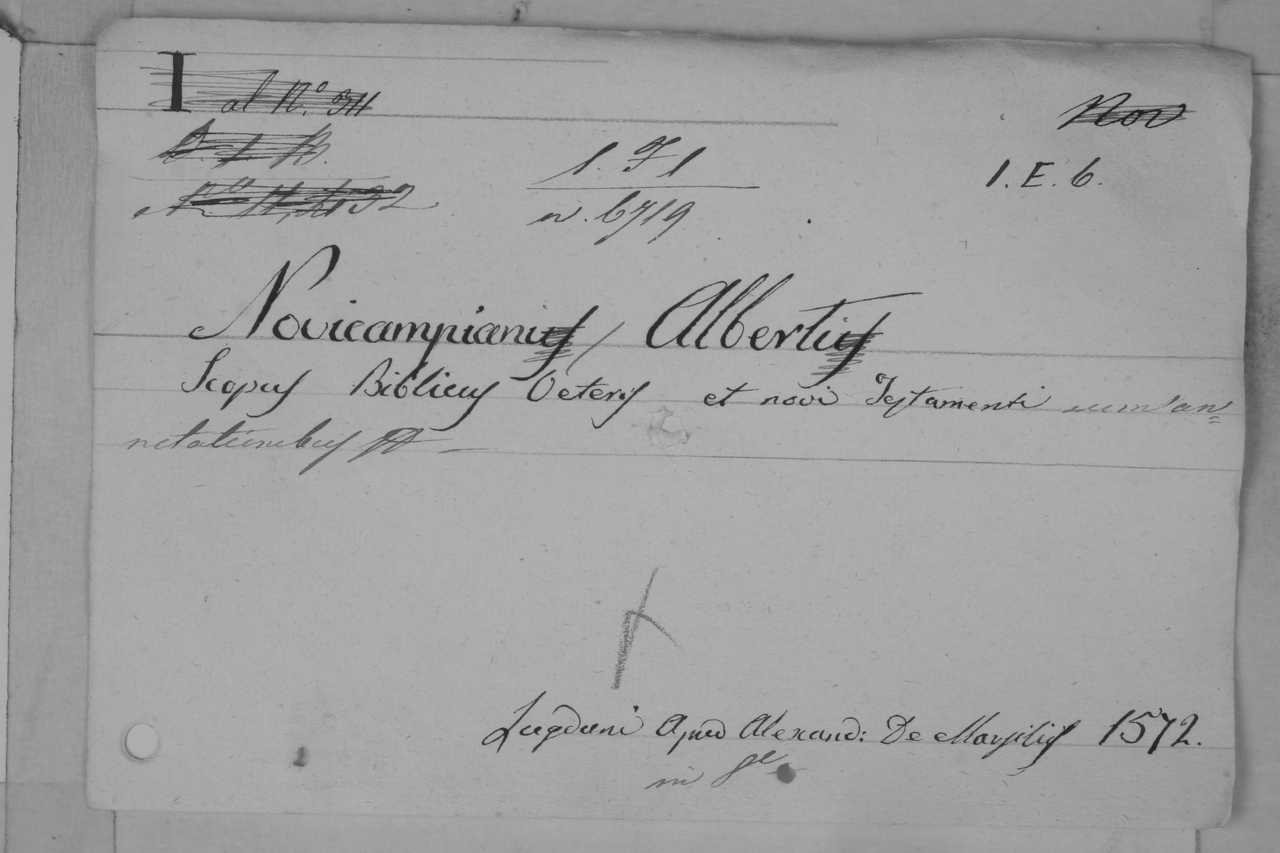 I al N.º 311
Nov
1. F 1
1. E. 6.
n. 6719
Novicampianus, Albertus
Scopus Biblicus Veteris et novi Testamenti cum an=
notationibus
Lugduni Apud Alexand: De Marsiliis 1572.
in 8º